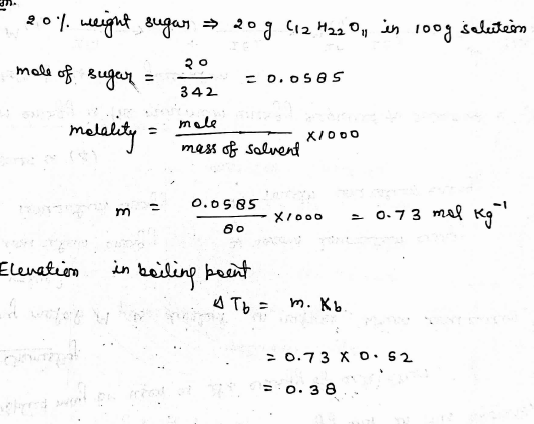 gn.
20% weight sugar ⇒ 20 g C12H22O11 in 100g solution
mole of sugar = 20/342 = 0.0585
molality = mole/mass of solvent ×1000
m = 0.0585/80 ×1000 = 0.73 mol Kg⁻¹
Elevation in boiling point
ΔTb = m. Kb
= 0.73 × 0.52
= 0.38